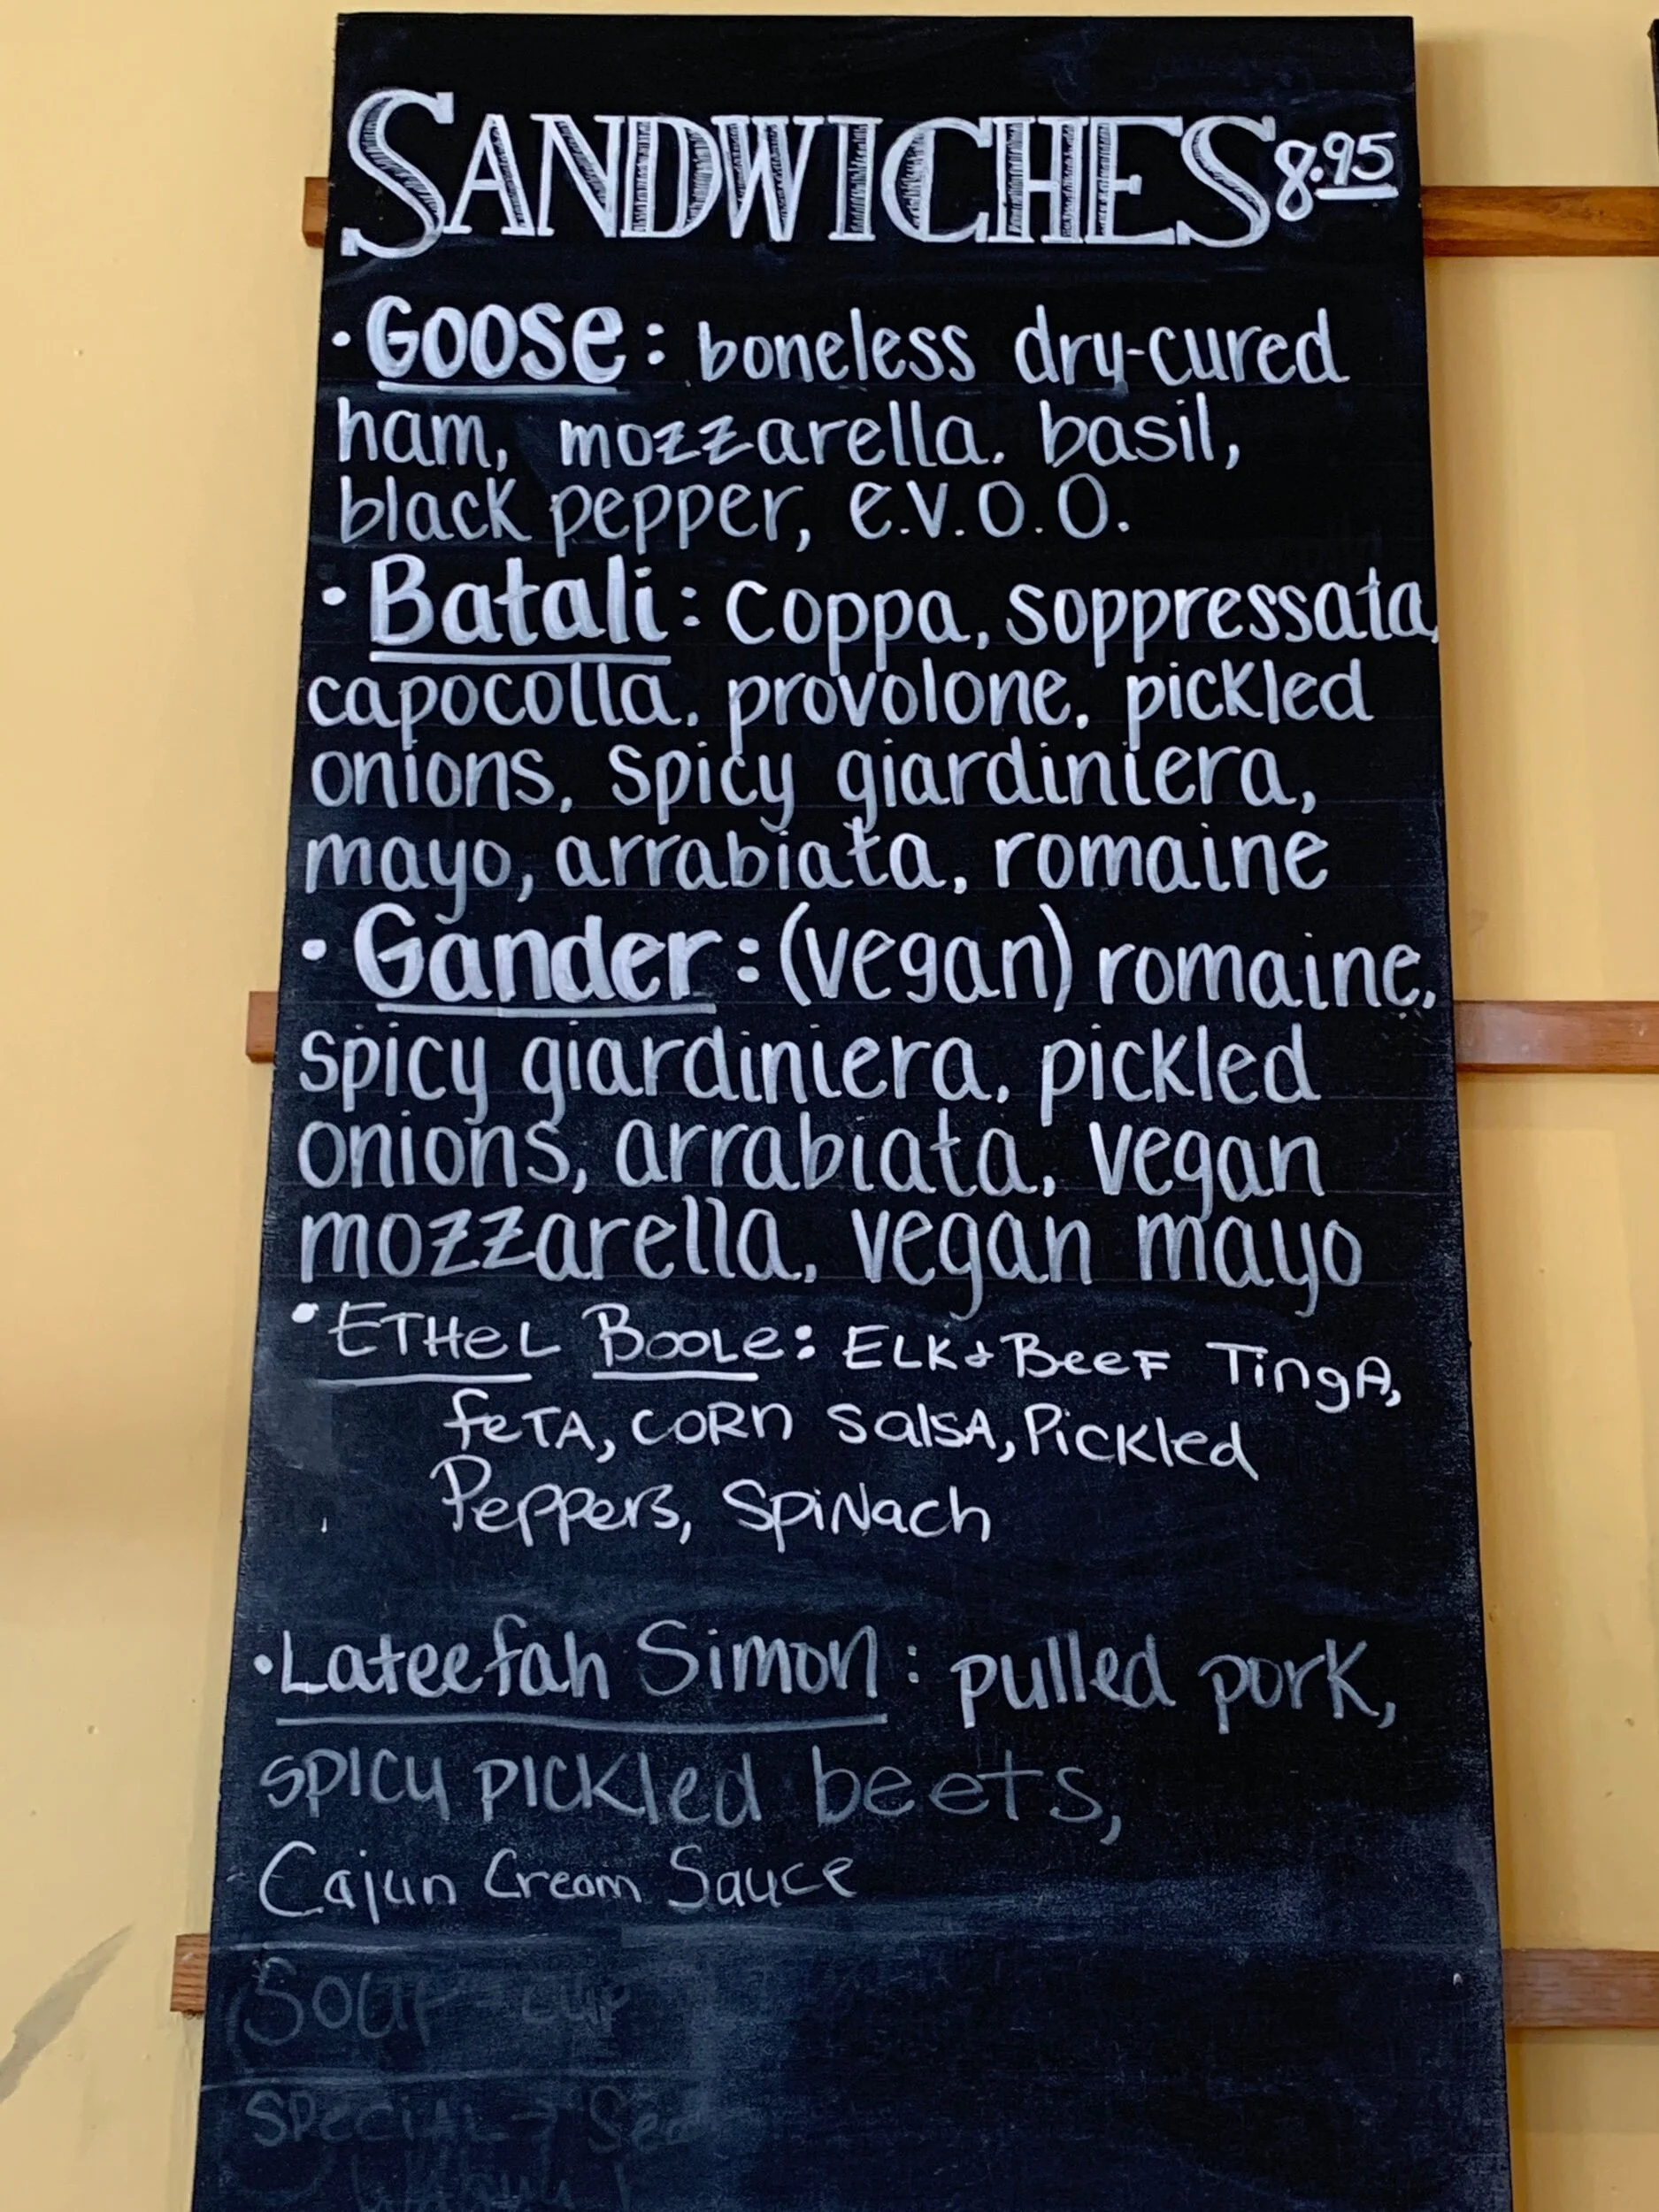 SANDWICHES 8.95
· Goose: boneless dry-cured
ham, mozzarella. basil,
black pepper, e.v.o.o.
· Batali: Coppa, soppressata,
capocolla, provolone, pickled
onions, spicy giardiniera,
mayo, arrabiata, romaine
· Gander: (vegan) romaine,
spicy giardiniera, pickled
onions, arrabiata, vegan
mozzarella, vegan mayo
· ETHeL BooLe: ELK & BeeF TingA,
feTA, CORn SalsA, Pickled
Peppers, SpiNach
· Lateefah Simon: pulled pork,
spicy pickled beets,
Cajun Cream Sauce
Soup - cup
Special →